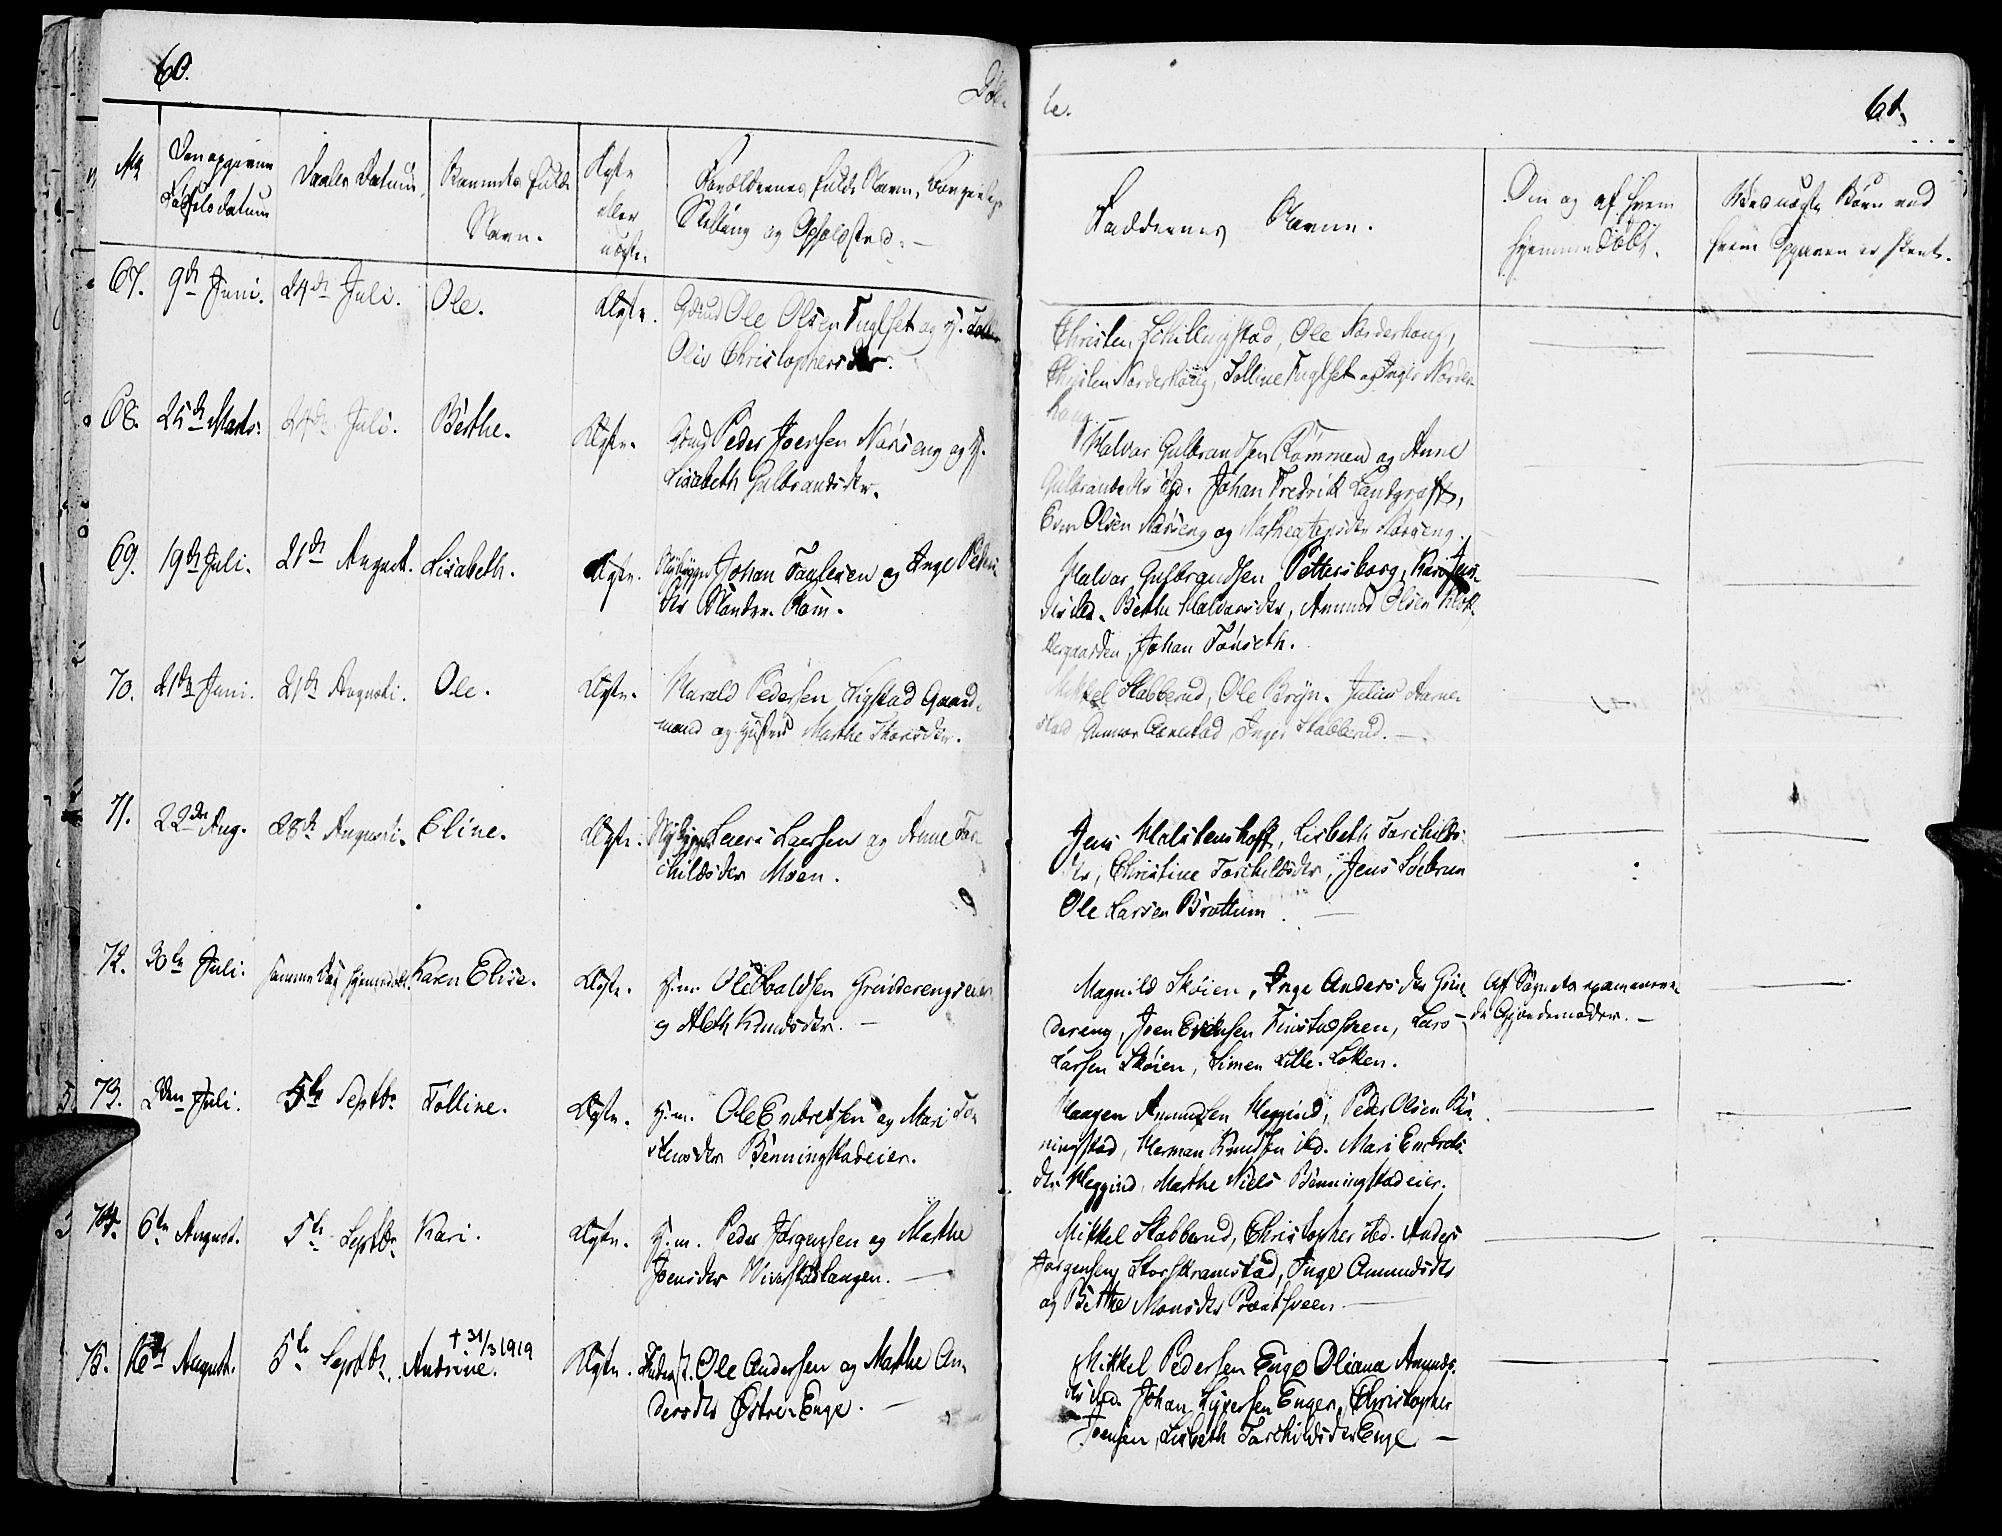 60.
Døb-
te.
61.
No
Den opgivne
Fødselsdatum
Daabs Datum.
Barnets fulde
Navn.
Ægte
eller
uægte.
Forældrenes fulde Navn, borgerlige
Stilling og Opholdsted.
Faddernes Navne.
Om og af hvem
hjemmedøbt.
Ved uægte Børn ved
hvem Opgaven er skeet.
67. 9de Juni. 24de Juli. Ole. Ægte. Ole Olsen Fuglset og H.
Christophersdtr.
Christen Schillingstad, Ole Norderhoug,
Christen Norderhoug, Tolline Fuglset og Inger Norder-
houg
68. 25de Marts. 24de Juli. Berthe. Ægte. Peder Joensen Narseng og H.
Lisabeth Gulbrandsdtr.
Halvor Gulbrandsen Rømmen og Anne
Gulbrandsdtr ibd. Johan Fredrik Landgraff,
Even Olsen Narseng og Mathea Narseng.
69. 19de Juli. 21de August. Lisabeth. Ægte. Nybygger Johan Paulesen og Inge Peders-
dtr
Halvor Gulbrandsen Pettersborg, Kari Jens-
dtr ibd. Berthe Halvorsdtr, Amund Olsen Klok-
kergaarden, Johan Tønseth.
70. 21de Juni. 21de Augusti. Ole. Ægte. Harald Pedersen Vigstad Gaard-
mand og Hustru Marthe Thorsdtr.
Mikkel Stabberud, Ole Bryn. Julius Aarne-
stad, Gunnor Aarnestad, Inger Stabberud.
71. 22den Aug. 28de Augusti. Eline. Ægte. Nybygger Laers Laersen og Anne Tor-
childsdtr Moen.
Jens Halstenshoff, Lisbeth Torchilds-
dtr, Christine Torchildsdtr, Jens Løebrun
Ole Larsen Brottum.
72. 30te Juli. samme Dag hjemmedøbt. Karen Elise. Ægte. H.m. Ole Grinderengseier
og Aleth Knudsdtr.
Magnild Skøien, Inge Andersdtr Grin-
dereng, Joen Evensen Finstadsveen, Lars
Larsen Skøien, Simen Lille-Løken.
Af Sognets examineren-
de Gjordemoder.
73. 2den Juli. 5te Septbr. Tolline. Ægte. H.m. Ole Endretsen og Mari Tor-
stensdtr Benningstadeier.
Haagen Amundsen Heggind, Peder Olsen Ben-
ningstad, Herman Knudsen ibd. Mari Endrets-
dtr Heggind, Marthe Niels Benningstadeier.
74. 6te August. 5te Septbr. Kari. Ægte. H.m. Peder Jørgensen og Marthe
Joensdtr Viverstadlangen.
Mikkel Stabberud, Christopher ibd. Anders
Jørgensen, Storskramstad, Inge Amundsdtr
og Berthe Monsdtr Præstsveen
75. 16de August. 5te Septbr. Andrine. † 31/3 1919 Ægte. Ole Andersen og Marthe An-
dersdtr Østre-Enge.
Mikkel Pedersen Enge Oliana Amunds-
dtr ibd. Johan Syversen Engen, Christopher
Joensen, Lisbeth Torchildsdtr Enge